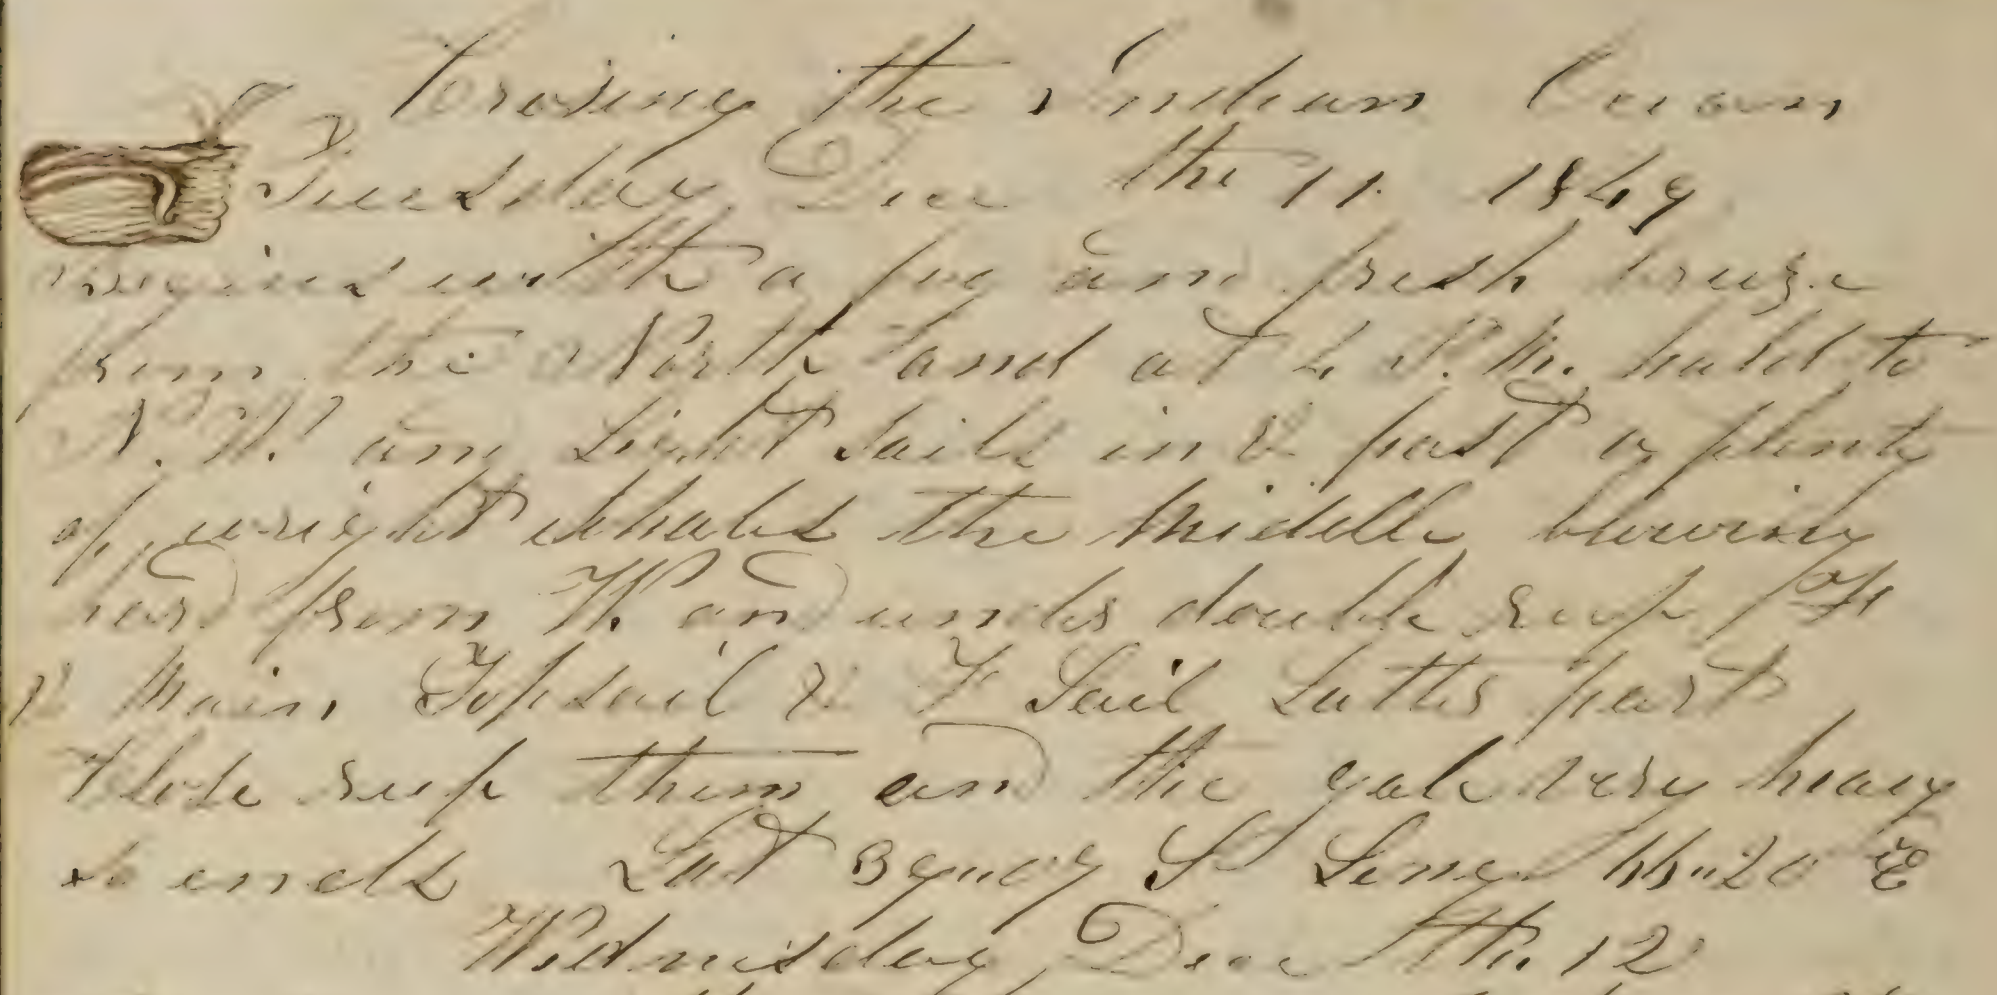 Crosing the Indian Ocean
Tuesday Dec the 11 1849
with a fog and fresh breeze
from the North and at 4 P.M. hald to
N.W. and Light Sails in & past a plenty
of wright whales the middle
hard from W. and under double reef F
& Main Topsail & F Sail Latter part
Close reef them and the gale very heavy
So ends Lat 39..09 S Long 66..20 E
Wednesday Dec the 12